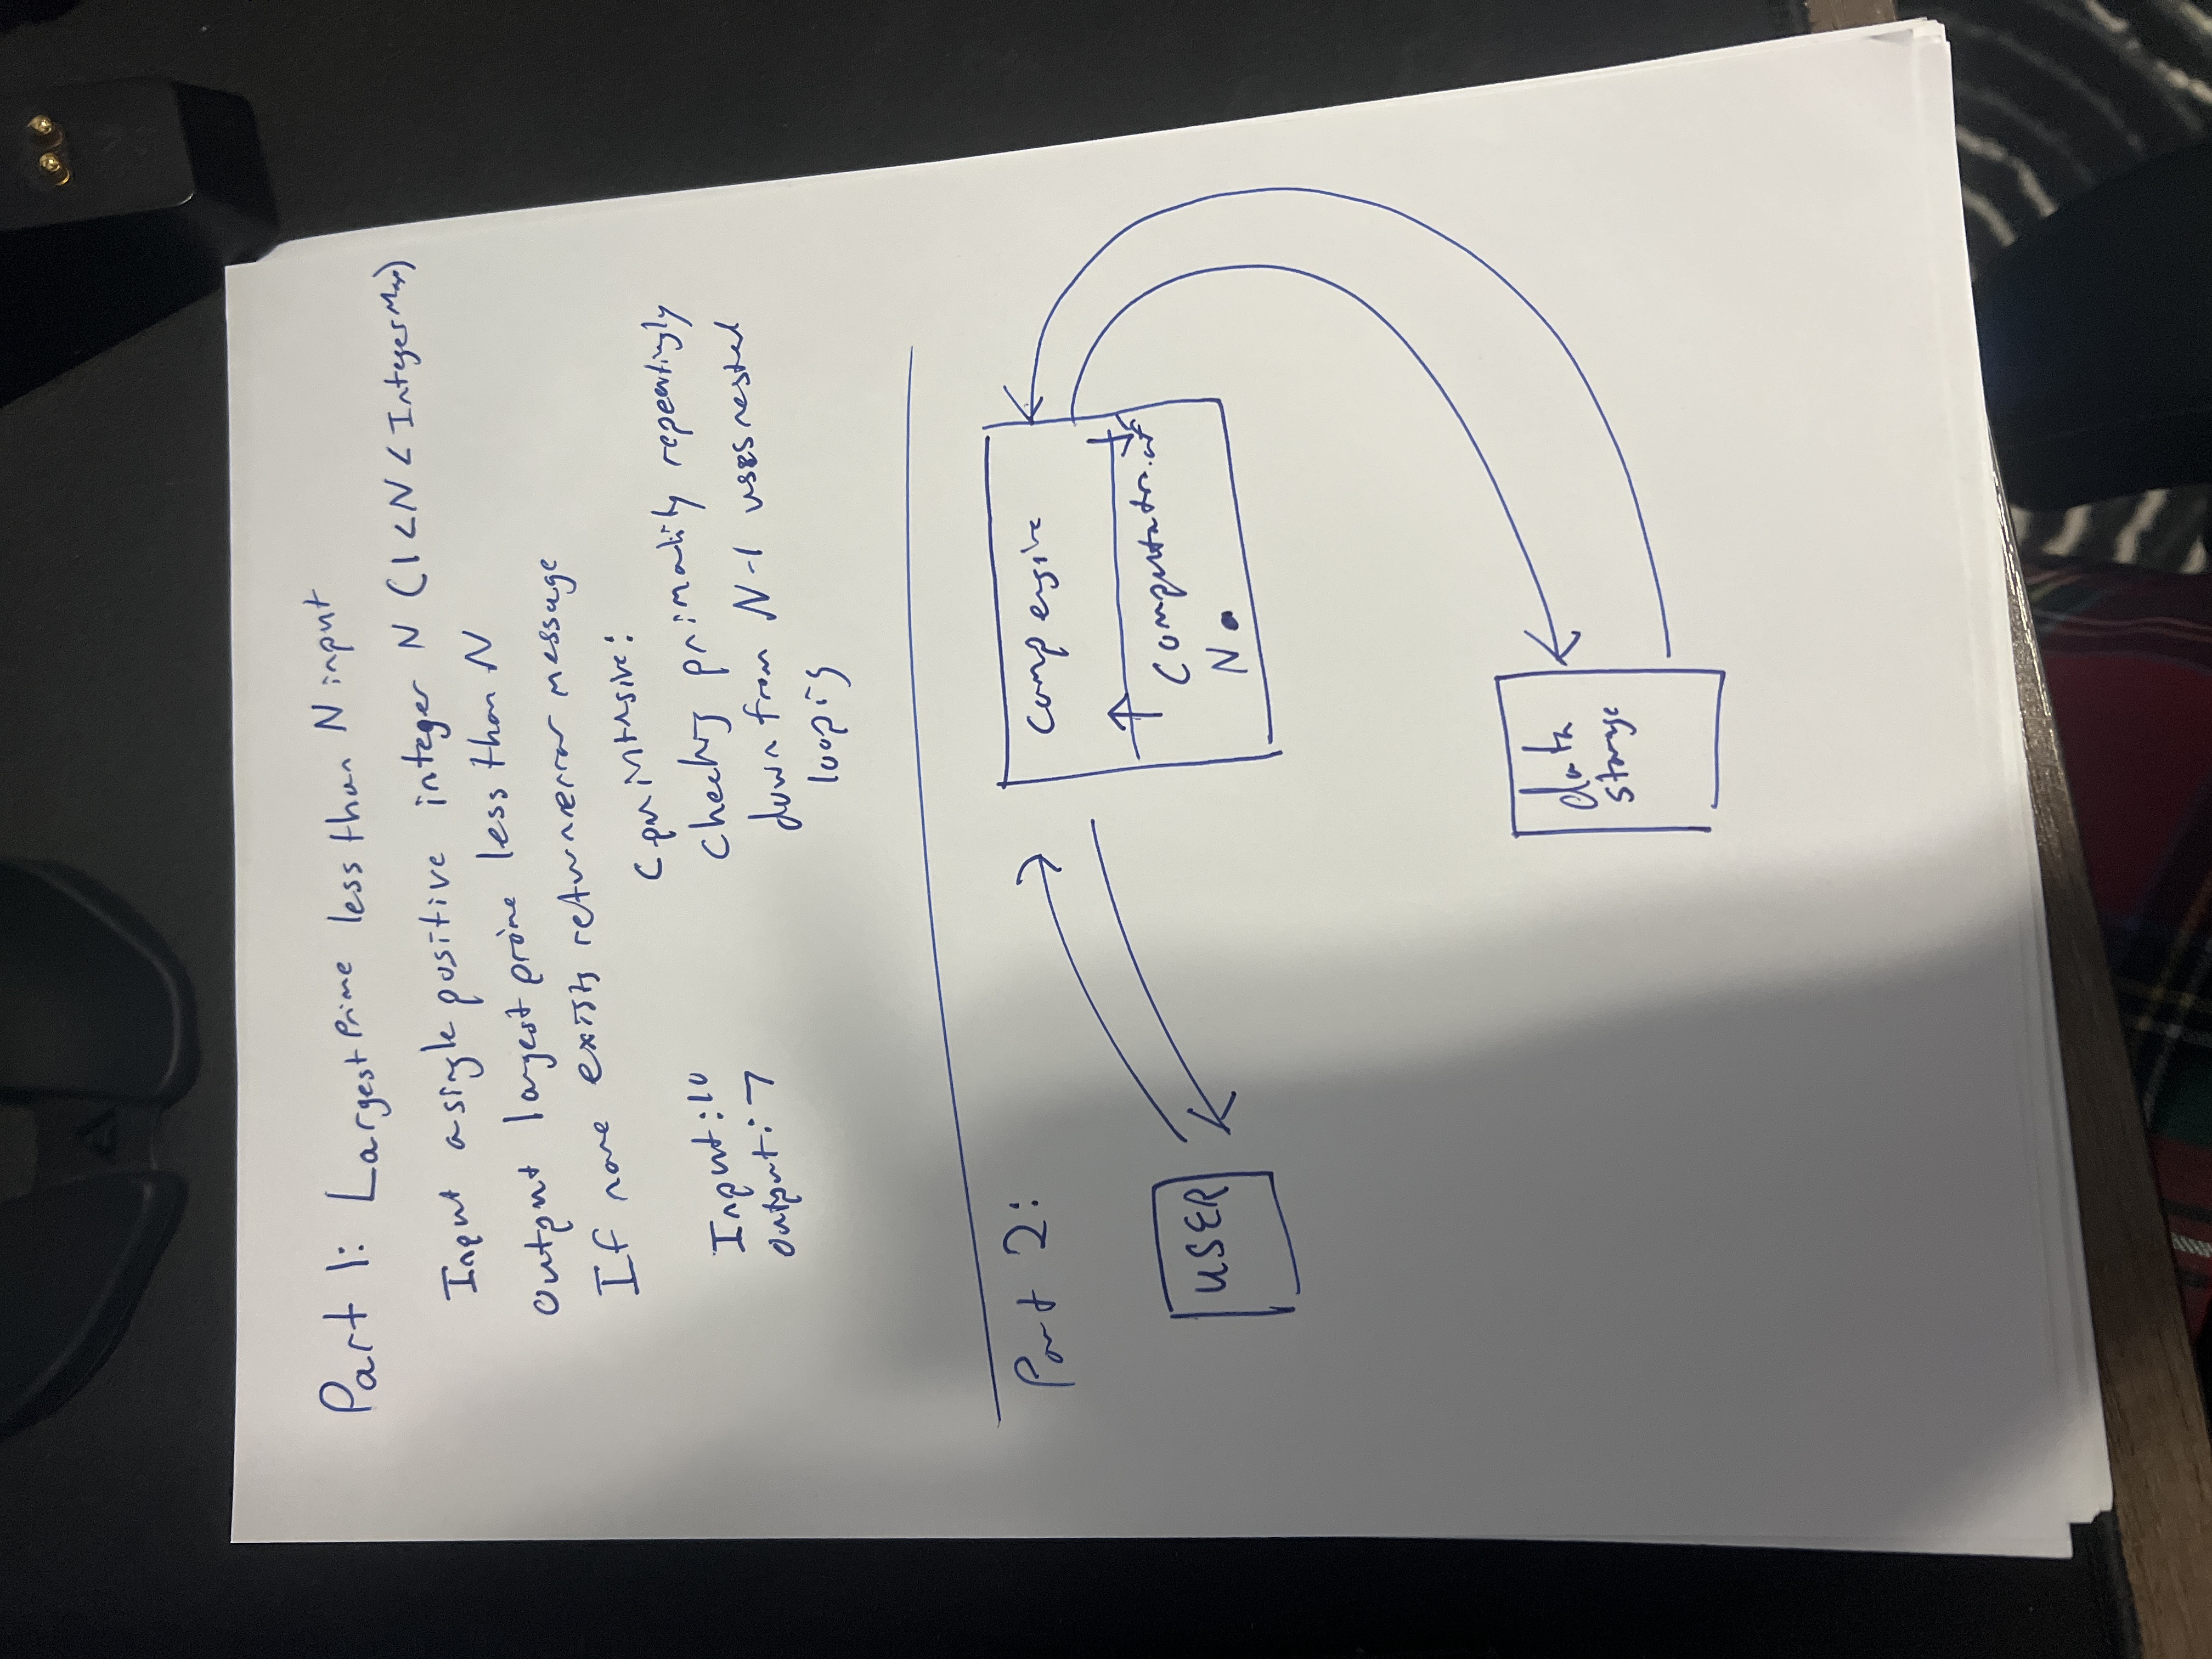 Part 1: Largest Prime less than N input
Input a single positive integer N (1 < N < Integer Max)
Output largest prime less than N
If none exists return error message
Cpu intnsive:
Input: 10
Output: 7
Checking primality repeatingly
down from N-1 uses nested
looping
Part 2:
Comp engine
USER
Computation of
N
data
storage